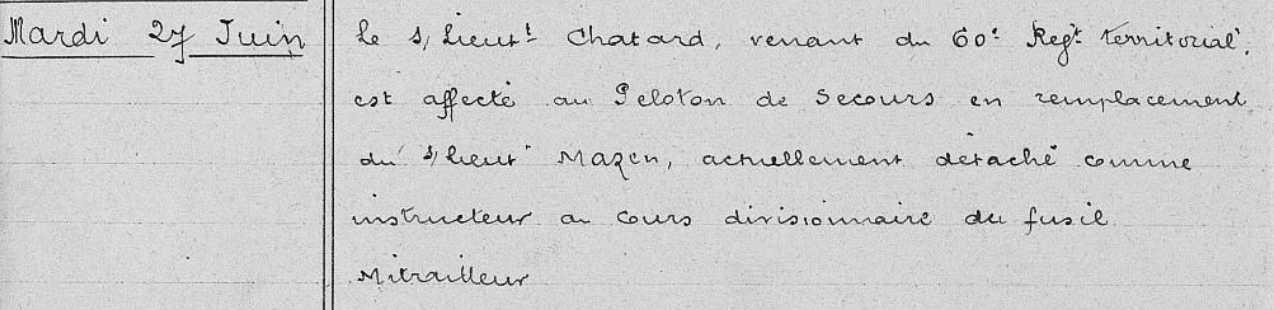 Mardi 27 Juin
le s/Lieutt Chatard, venant du 60e Regt territorial,
est affecté au Peloton de Secours en remplacement
du s/lieut Mazen, actuellement détaché comme
instructeur au cours divisionnaire du fusil
Mitrailleur